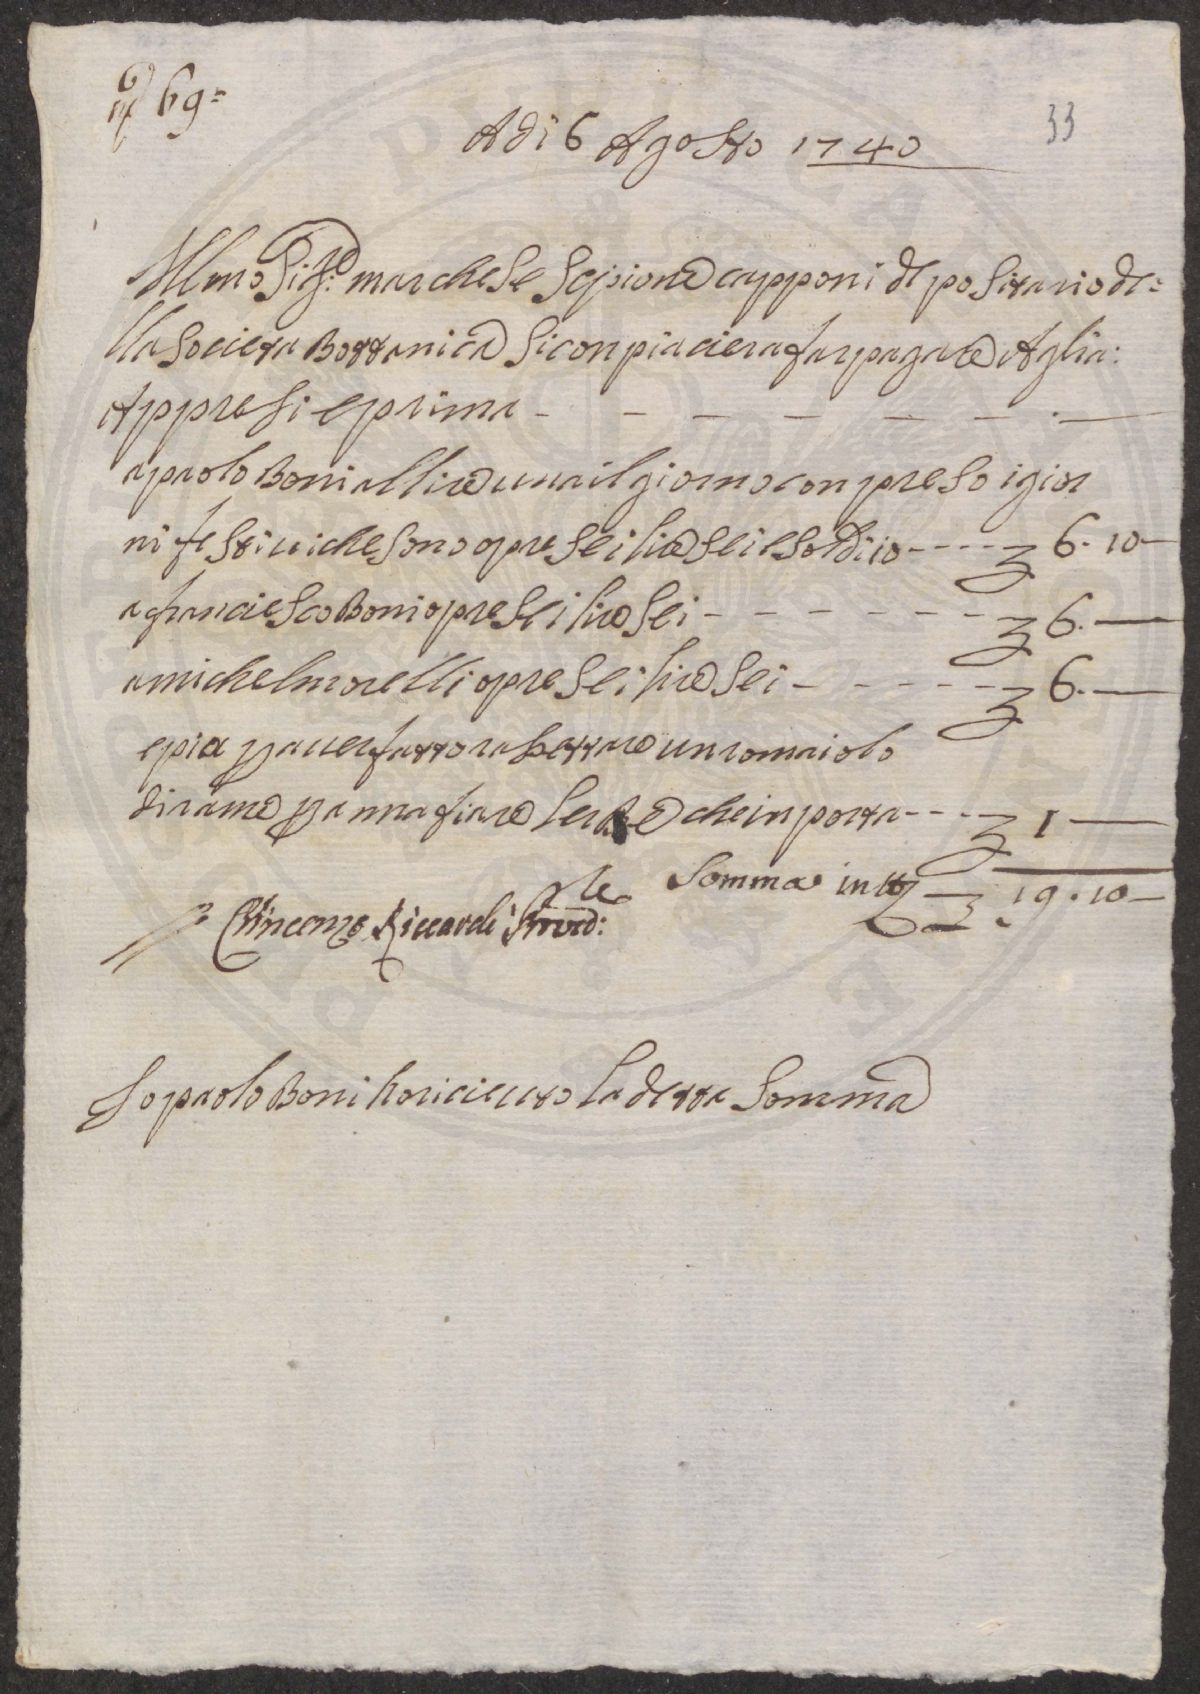 69=
33
Adi 6 Agosto 1740
Illmo Sig.re marchese Scipione capponi depositario de=
lla Societa Bottanica Si conpiaciera far pagare Aglia:
Appresi e prima
a paolo Boni a llire una il giorno conpreso i gior
ni festivi che sono opre sei lire sei e soldi 10 ---- 6. 10 —
a franciesco Boni opre sei lire sei - - - - - - - 6. —
a michel morelli opre sei lire sei - - - - - - 6. —
e piu p aver fatto rasettare un romaiolo
di rame p annafiare lerbe che inporta ---- 1 —
Somma in tto — 19. 10 —
Vincenzo Riccardi Provd:re
Io paolo Boni ho riceuto la detta Somma